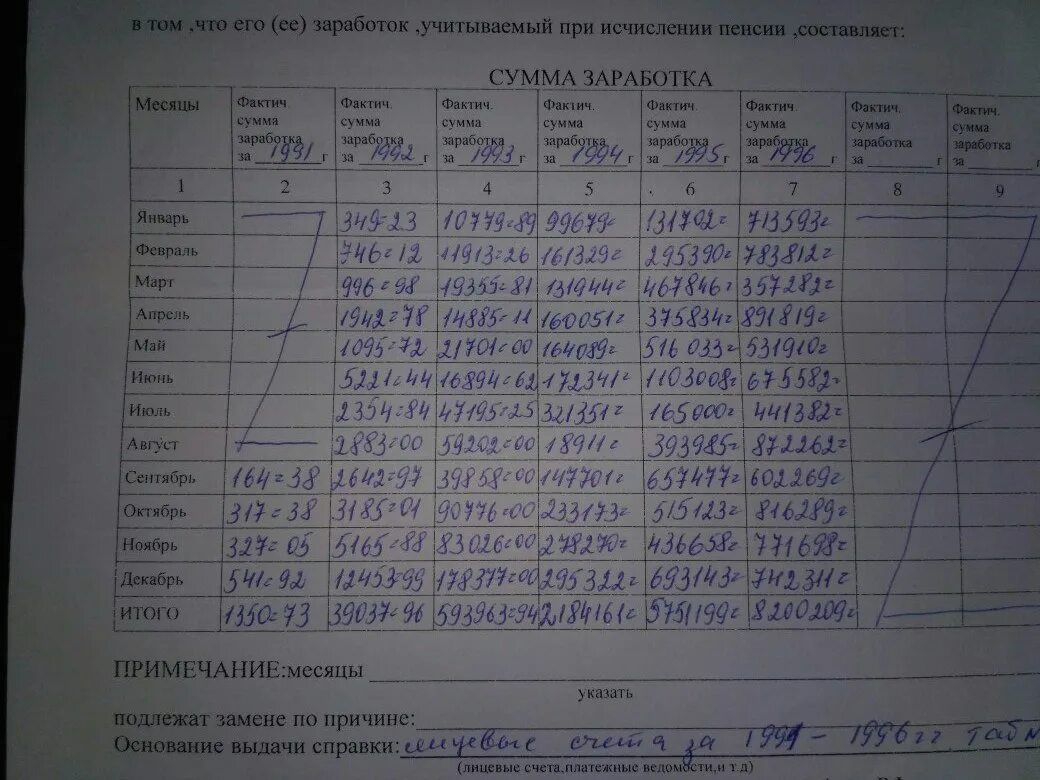 в том ,что его (ее) заработок ,учитываемый при исчислении пенсии ,составляет:
СУММА ЗАРАБОТКА
Месяцы Фактич. сумма заработка за 1991 г Фактич. сумма заработка за 1992 г Фактич. сумма заработка за 1993 г Фактич. сумма заработка за 1994 г Фактич. сумма заработка за 1995 г Фактич. сумма заработка за 1996 г Фактич. сумма заработка за ____ г Фактич. сумма заработка за ____
1 2 3 4 5 6 7 8 9
Январь 349=23 10779=89 99679= 131702= 713593=
Февраль 746=12 11913=26 161329= 295390= 783812=
Март 996=98 19355=81 131944= 467846= 357282=
Апрель 1942=78 14885=11 160051= 375834= 891819=
Май 1095=72 21701=00 164089= 516033= 531910=
Июнь 5221=44 16894=62 172341= 1103008= 675582=
Июль 2354=84 47195=25 321351= 165000= 441382=
Август 2883=00 59202=00 18911= 393985= 872262=
Сентябрь 164=38 2642=97 39858=00 147701= 657477= 602269=
Октябрь 317=38 3185=01 90776=00 233173= 515123= 816289=
Ноябрь 327=05 5165=88 83026=00 278270= 436658= 771698=
Декабрь 541=92 12453=99 178377=00 295322= 693143= 742311=
ИТОГО 1350=73 39037=96 593963=94 2184161= 5751199= 8200209=
ПРИМЕЧАНИЕ:месяцы
указать
подлежат замене по причине:
Основание выдачи справки: лицевые счета за 1991 – 1996гг
(лицевые счета,платежные ведомости,и т.д)